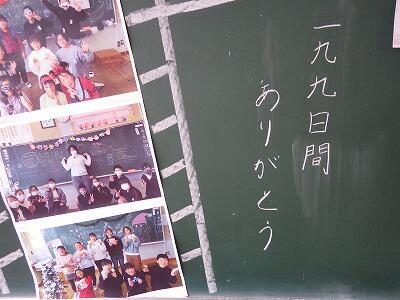 一九九日間
ありがとう